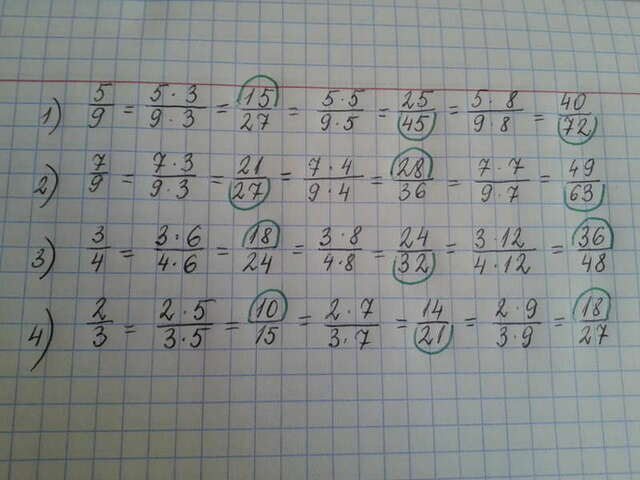 1) 5/9 = 5·3/9·3 = 15/27 = 5·5/9·5 = 25/45 = 5·8/9·8 = 40/72
2) 7/9 = 7·3/9·3 = 21/27 = 7·4/9·4 = 28/36 = 7·7/9·7 = 49/63
3) 3/4 = 3·6/4·6 = 18/24 = 3·8/4·8 = 24/32 = 3·12/4·12 = 36/48
4) 2/3 = 2·5/3·5 = 10/15 = 2·7/3·7 = 14/21 = 2·9/3·9 = 18/27